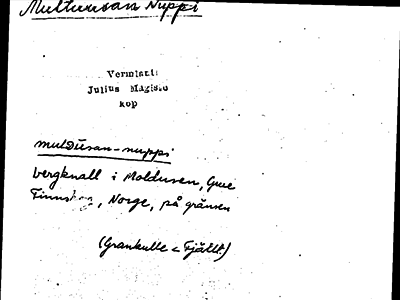 Multuusan Nuppi
Vermlanti
Julius Mägisto
kop
multūsan-nuppi
bergknall i Moldusen, Grue
Finnskog, Norge, på gränsen
(Grankulle < Fjällt.)